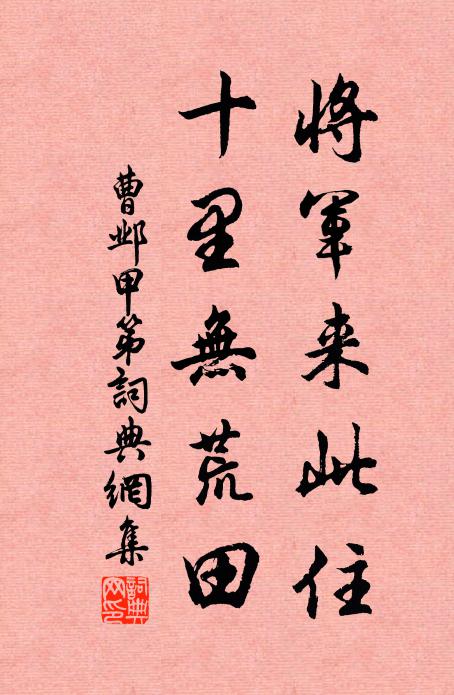 將軍来此住
十里無荒田
曹邺甲第詞典網集
詞典网印